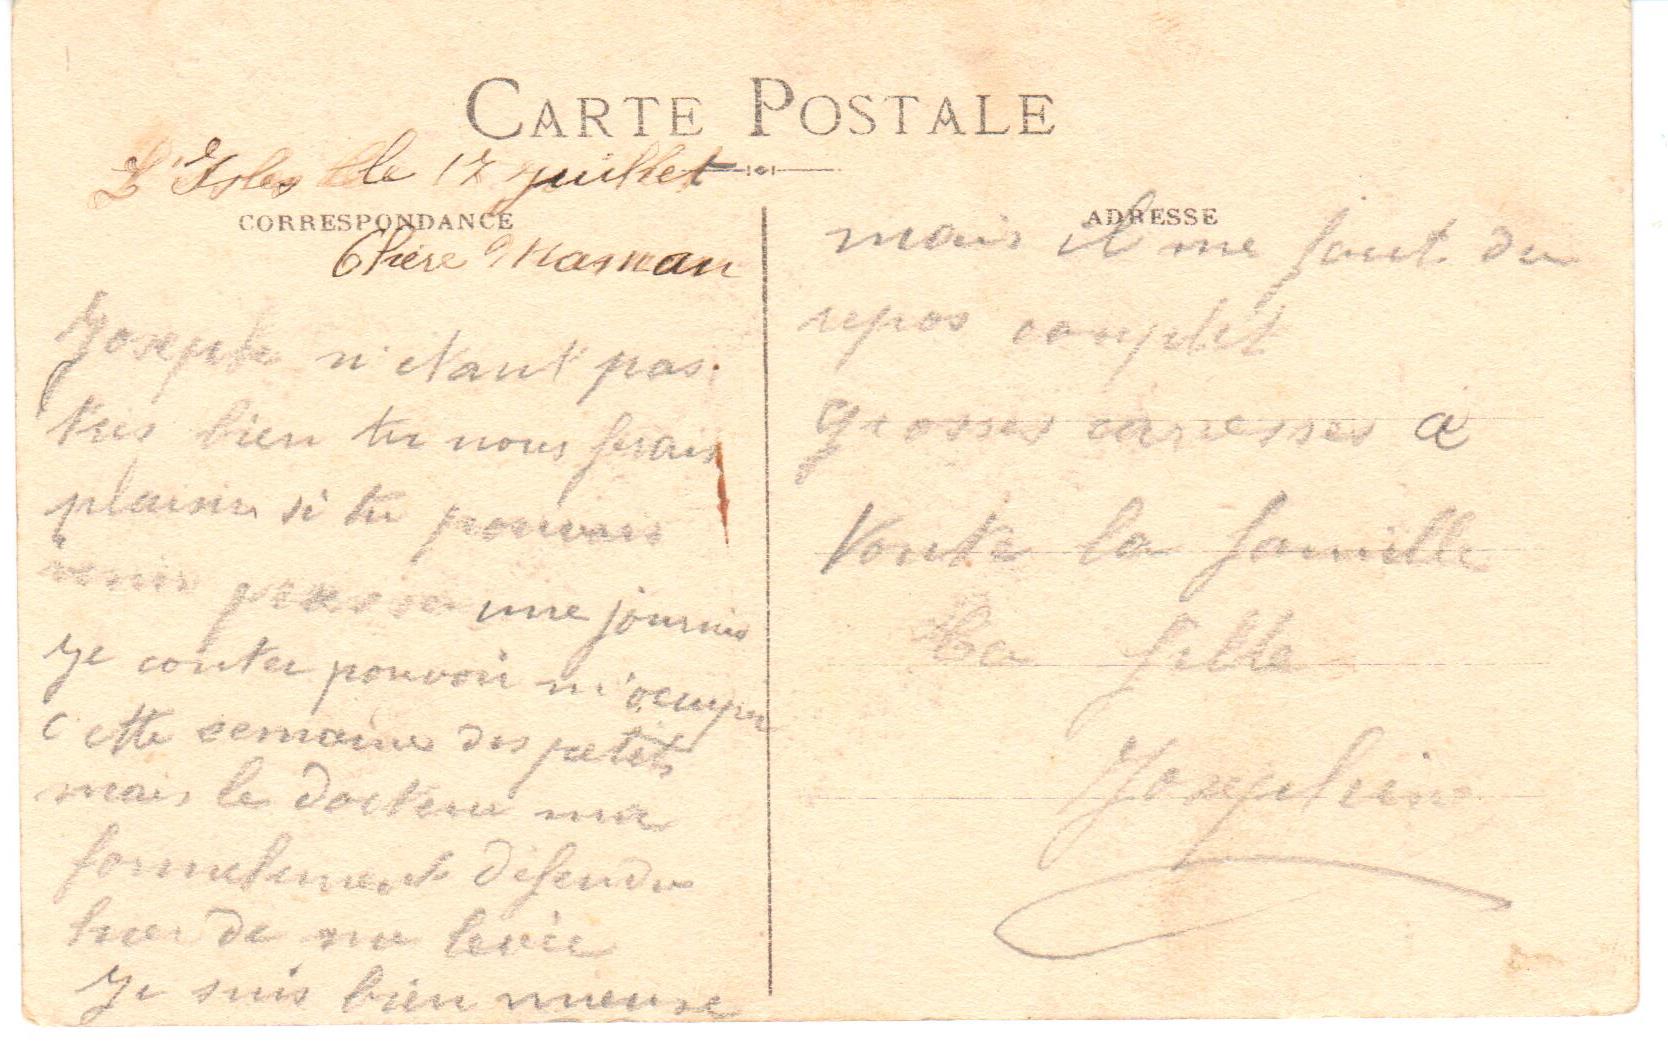 CARTE POSTALE
L'Isle le 17 Juillet
CORRESPONDANCE
Chère Maman
Joseph n'etant pas
tres bien tu nous ferais
plaisir si tu pouvais
venir passer une journée
Je conter pouvoir m'ocuper
cette semaine des petits
mais le docteur ma
formelement défendu
hier de me levée
Je suis bien mieuse
ADRESSE
mais il me faut du
repos complet
grosses caresses a
toute la famille
Ta fille
Josephine